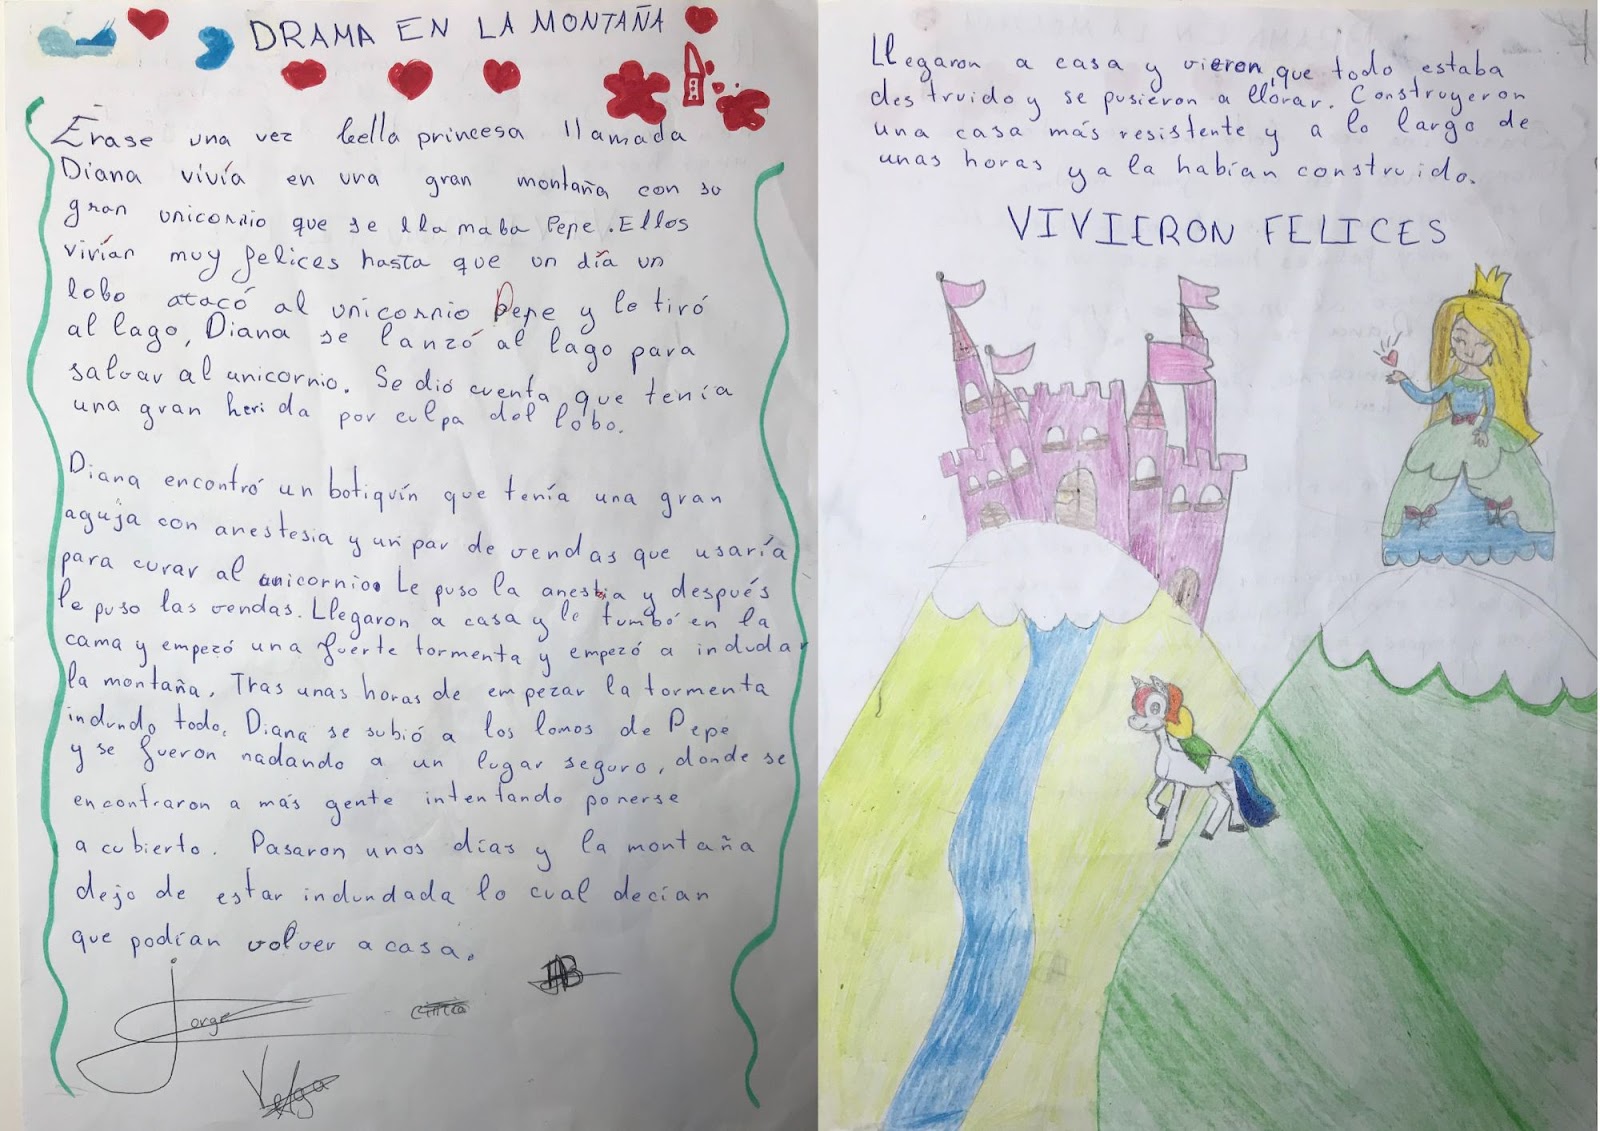 DRAMA EN LA MONTAÑA
Érase una vez bella princesa llamada
Diana vivía en una gran montaña con su
gran unicornio que se llamaba Pepe. Ellos
vivían muy felices hasta que un día un
lobo atacó al unicornio Pepe y le tiró
al lago, Diana se lanzó al lago para
salvar al unicornio. Se dió cuenta que tenía
una gran herida por culpa del lobo.
Diana encontró un botiquín que tenía una gran
aguja con anestesia y un par de vendas que usaría
para curar al unicornio. Le puso la anestia y después
le puso las vendas. Llegaron a casa y le tumbó en la
cama y empezó una fuerte tormenta y empezó a indudar
la montaña. Tras unas horas de empezar la tormenta
indundo todo. Diana se subió a los lomos de Pepe
y se fueron nadando a un lugar seguro, donde se
encontraron a más gente intentando ponerse
a cubierto. Pasaron unos días y la montaña
dejo de estar indundada lo cual decían
que podían volver a casa.
Jorge
AB
Vega
Llegaron a casa y vieron que todo estaba
destruido y se pusieron a llorar. Construyeron
una casa más resistente y a lo largo de
unas horas ya la habían construido.
VIVIERON FELICES